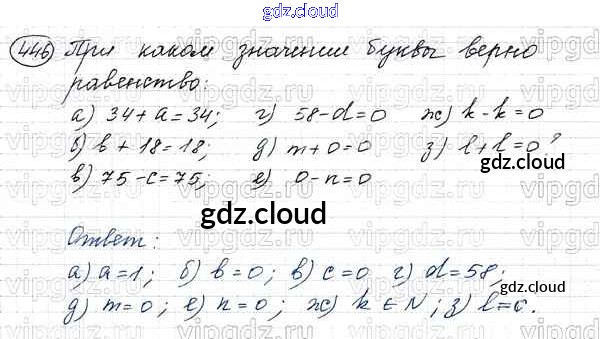 gdz.cloud
446 При каком значении буквы верно
равенство:
а) 34+a=34; г) 58-d=0 ж) k-k=0
б) b+18=18; д) m+0=0 з) l+l=0?
в) 75-c=75; е) 0-n=0
gdz.cloud
gdz.cloud
Ответ:
а) a=1; б) b=0; в) c=0 г) d=58;
д) m=0; е) n=0; ж) k ∈ N; з) l=c.
gdz.cloud